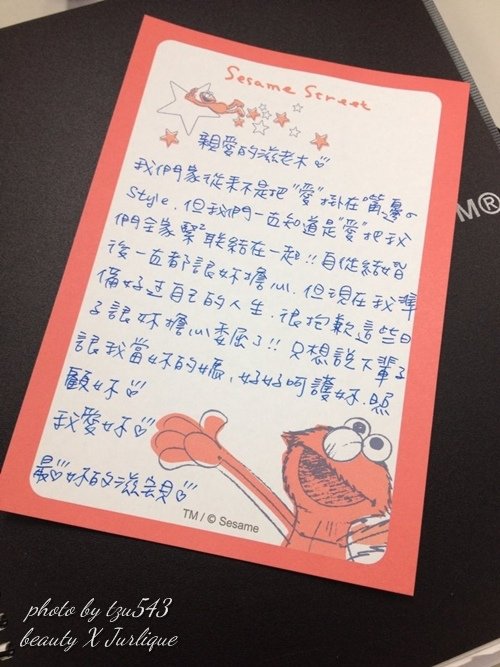 Sesame Street
親愛的滋老木
我們家從來不是把"愛"掛在嘴邊の
style.但我們一直知道是"愛"把我
們全家緊緊聯結在一起!!自從結婚
後一直都讓妳擔心.但現在我準
備好過自己的人生.很抱歉這些日
子讓妳擔心委屈了!!只想說下輩子
讓我當妳的媽,好好呵護妳.照
顧妳
我愛妳
最 妳的滋
TM / © Sesame
TM®
photo by tzu543
beauty X Jurlique